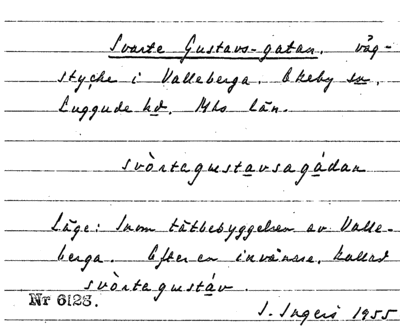 Svarte Gustavs-gatan. väg-
stycke i Valleberga. Ekeby sn.
Luggude hd. Mhs län.
svòrtagustavsagádan
Läge: Inom tätbebyggelsen av Valle-
berga. Efter en invånare, kallad
svòrtagustáv.
Nr 6128.
I. Ingers 1955